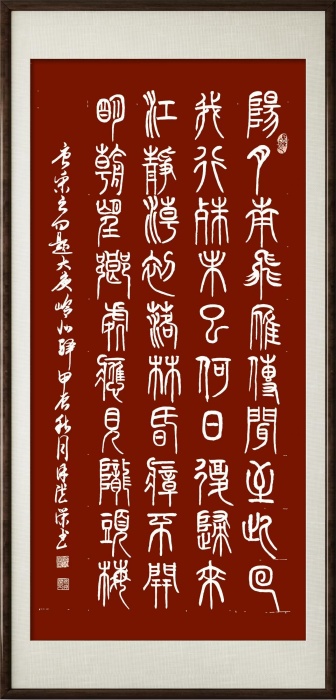 陽月南飛雁傳聞至此回
我行殊未已何日復歸來
江靜潮初落林昏瘴不開
明朝望鄉處應見隴頭梅
唐宋之问題大庾嶺北驿 甲辰秋月 書